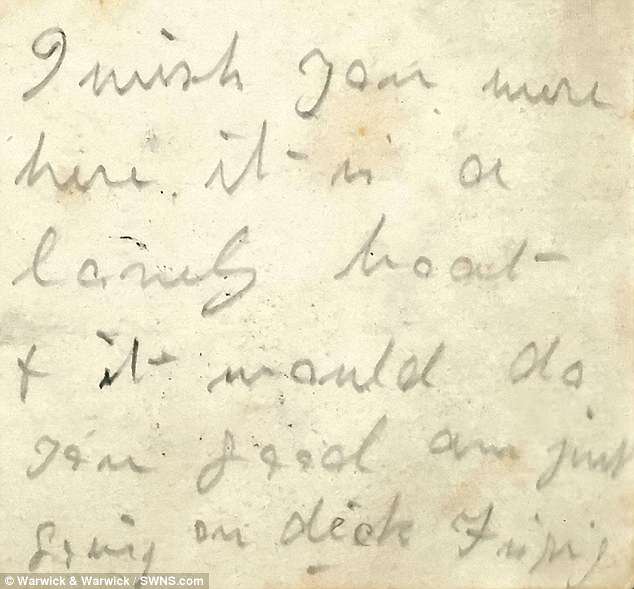 I wish you were
here, it is a
lovely boat
+ it would do
you good am just
going on deck
© Warwick & Warwick / SWNS.com